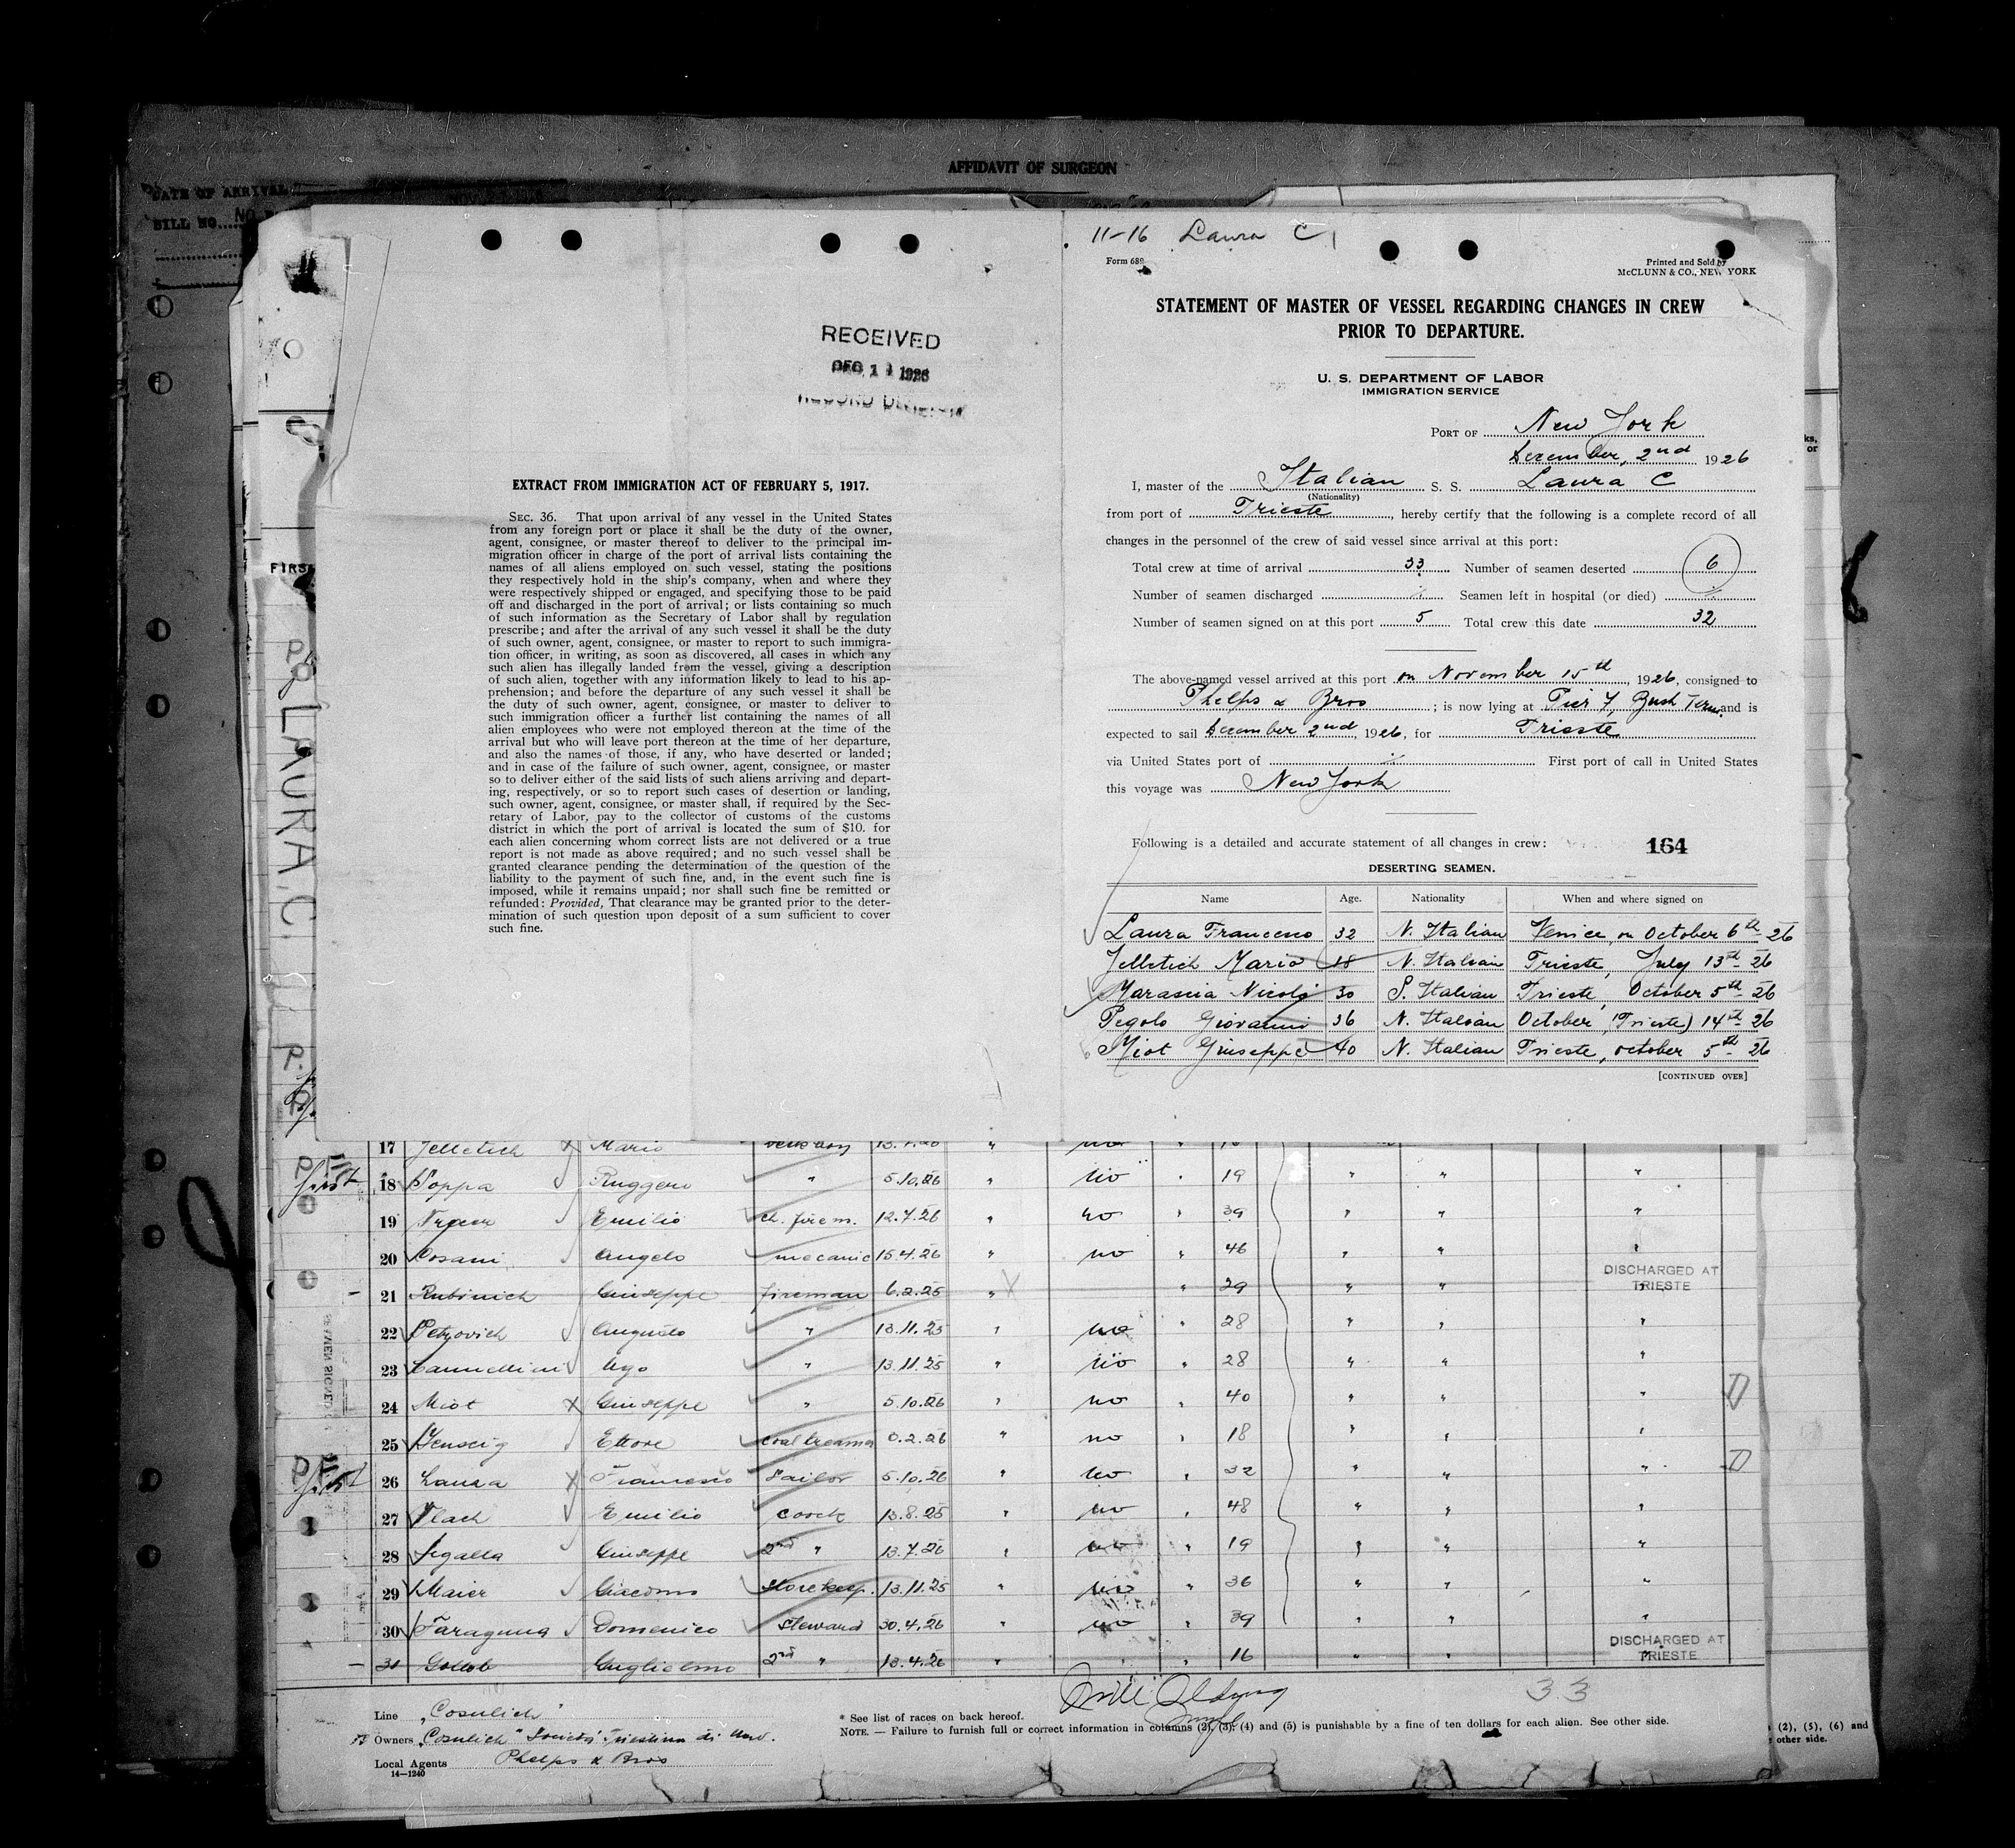 AFFIDAVIT OF SURGEON
DATE OF ARRIVAL
BILL NO.
FIRS
LAURA. C.
RECEIVED
DEC 1 1926
RECORD DIVISION
EXTRACT FROM IMMIGRATION ACT OF FEBRUARY 5, 1917.
SEC. 36. That upon arrival of any vessel in the United States
from any foreign port or place it shall be the duty of the owner,
agent, consignee, or master thereof to deliver to the principal im-
migration officer in charge of the port of arrival lists containing the
names of all aliens employed on such vessel, stating the positions
they respectively hold in the ship's company, when and where they
were respectively shipped or engaged, and specifying those to be paid
off and discharged in the port of arrival; or lists containing so much
of such information as the Secretary of Labor shall by regulation
prescribe; and after the arrival of any such vessel it shall be the duty
of such owner, agent, consignee, or master to report to such immigra-
tion officer, in writing, as soon as discovered, all cases in which any
such alien has illegally landed from the vessel, giving a description
of such alien, together with any information likely to lead to his ap-
prehension; and before the departure of any such vessel it shall be
the duty of such owner, agent, consignee, or master to deliver to
such immigration officer a further list containing the names of all
alien employees who were not employed thereon at the time of the
arrival but who will leave port thereon at the time of her departure,
and also the names of those, if any, who have deserted or landed;
and in case of the failure of such owner, agent, consignee, or master
so to deliver either of the said lists of such aliens arriving and depart-
ing, respectively, or so to report such cases of desertion or landing,
such owner, agent, consignee, or master shall, if required by the Sec-
retary of Labor, pay to the collector of customs of the customs
district in which the port of arrival is located the sum of $10. for
each alien concerning whom correct lists are not delivered or a true
report is not made as above required; and no such vessel shall be
granted clearance pending the determination of the question of the
liability to the payment of such fine, and, in the event such fine is
imposed, while it remains unpaid; nor shall such fine be remitted or
refunded: Provided, That clearance may be granted prior to the deter-
mination of such question upon deposit of a sum sufficient to cover
such fine.
11-16 Laura C
Form 689
Printed and Sold by
McCLUNN & CO., NEW YORK
STATEMENT OF MASTER OF VESSEL REGARDING CHANGES IN CREW
PRIOR TO DEPARTURE.
U. S. DEPARTMENT OF LABOR
IMMIGRATION SERVICE
PORT OF New York
December, 2nd 1926
I, master of the Italian S. S. Laura C
(Nationality)
from port of Trieste, hereby certify that the following is a complete record of all
changes in the personnel of the crew of said vessel since arrival at this port:
Total crew at time of arrival 33 Number of seamen deserted 6
Number of seamen discharged Seamen left in hospital (or died)
Number of seamen signed on at this port 5 Total crew this date 32
The above-named vessel arrived at this port on November 15th, 1926, consigned to
Phelps & Bros; is now lying at Pier 7, Bush Term. and is
expected to sail December 2nd, 1926, for Trieste
via United States port of First port of call in United States
this voyage was New York
Following is a detailed and accurate statement of all changes in crew: 164
DESERTING SEAMEN.
Name Age. Nationality When and where signed on
Laura Francesco 32 N. Italian Venice, on October 6th 26
Jelletich Mario 18 N. Italian Trieste, July 13th 26
Marascia Nicolo 30 S. Italian Trieste, October 5th 26
Pegolo Giovanni 36 N. Italian October (Trieste) 14th 26
Miot Giuseppe 40 N. Italian Trieste, october 5th 26
[CONTINUED OVER]
17 Jelletich Mario 13.7.26
18 Poppa Ruggero " 5.10.26 " no " 19 " " "
19 Emilio ch. firem. 12.7.26 " no " 39 " " "
20 Cosani Angelo mecanic 15.4.26 " no " 46 " " "
DISCHARGED AT
TRIESTE
21 Rubinich Giuseppe fireman 6.2.25 " " 29 " "
22 Petrovich Augusto " 13.11.25 " no " 28 " " "
23 Cannellini Ugo " 13.11.25 " no " 28 " " "
24 Miot Giuseppe " 5.10.26 " no " 40 " " " D
25 Ettore 0.2.26 " no " 18 " " "
26 Laura Francesco Sailor 5.10.26 " no " 32 " " " D
27 Vlach Emilio Coock 13.8.25 " no " 48 " " "
28 Segalla Giuseppe 2nd " 13.7.26 " no " 19 " " "
29 Maier Giacomo storekeep. 13.11.25 " no " 36 " " "
30 Faraguna Domenico Steward 30.4.26 " no " 39 " " "
DISCHARGED AT
TRIESTE
31 Gottob Guglielmo 2nd " 13.4.26 " " " 16 " "
33
Line "Cosulich"
Owners "Cosulich" Societa' Triestina di Nav.
Local Agents Phelps & Bros
14—1240
* See list of races on back hereof.
NOTE. — Failure to furnish full or correct information in columns (2), (3), (4) and (5) is punishable by a fine of ten dollars for each alien. See other side.
(2), (5), (6) and
other side.